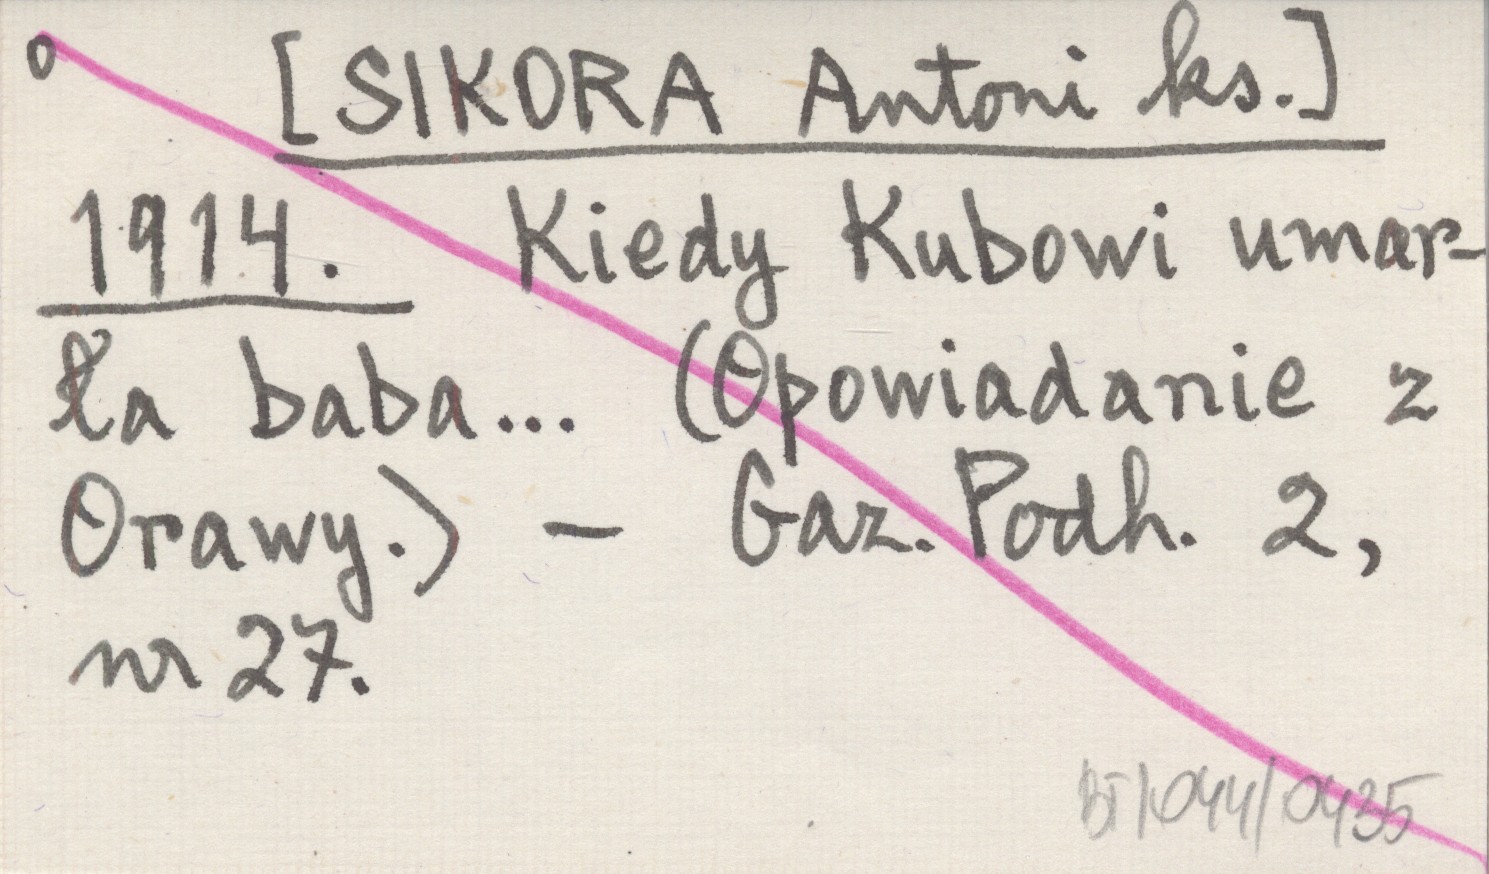 o [SIKORA Antoni ks.]
1914. Kiedy Kubowi umar-
ła baba... (Opowiadanie z
Orawy.) - Gaz. Podh. 2,
nr 27.
BT/044/0435